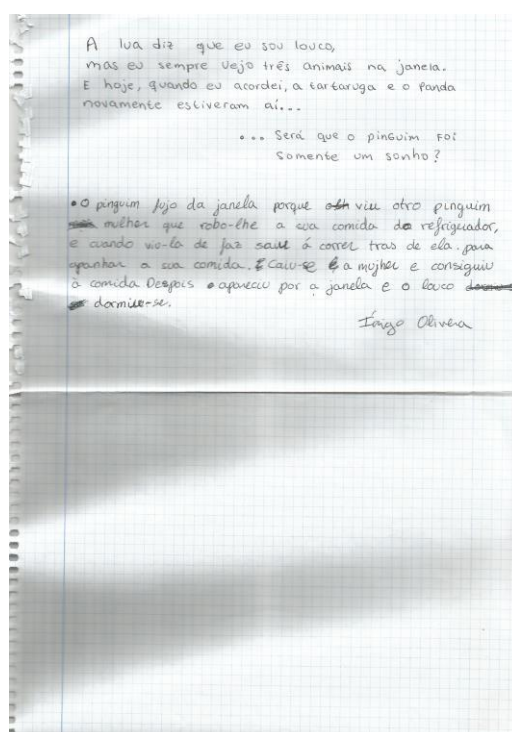 A lua diz que eu sou louco,
mas eu sempre vejo três animais na janela.
E hoje, quando eu acordei, a tartaruga e o Panda
novamente estiveram aí...
... Será que o pinguim foi
somente um sonho?
• O pinguim fujo da janela porque viu otro pinguim
mulher que robo-lhe a sua comida do refriguiador,
e cuando vio-la de faz saiu á correr tras de ela. para
apanhar a sua comida. Caiu-se a mujher e consiguiu
à comida Despois apareciu por a janela e o louco
dormiu-se.
Íñigo Olivera